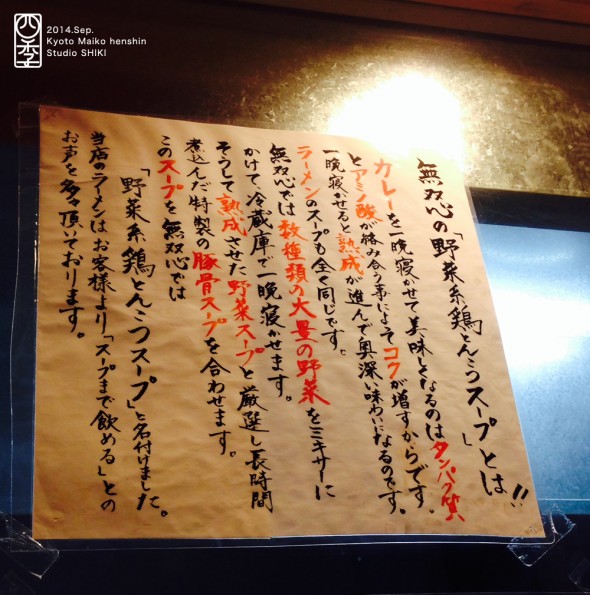 四季
2014.Sep.
Kyoto Maiko henshin
Studio SHIKI
無双心の「野菜系鶏とんこつスープ」とは!!
カレーを一晩寝かせて美味となるのはタンパク質
とアミノ酸が絡み合う事によってコクが増すからです。
一晩寝かせると熟成が進んで奥深い味わいになるのです。
ラーメンのスープも全く同じです。
無双心では数種類の大量の野菜をミキサーに
かけて、冷蔵庫で一晩寝かせます。
そうして熟成させた野菜スープと厳選し長時間
煮込んだ特製の豚骨スープを合わせます。
このスープを無双心では
「野菜系鶏とんこつスープ」と名付けました。
当店のラーメンはお客様より「スープまで飲める」との
お声を多々頂いております。